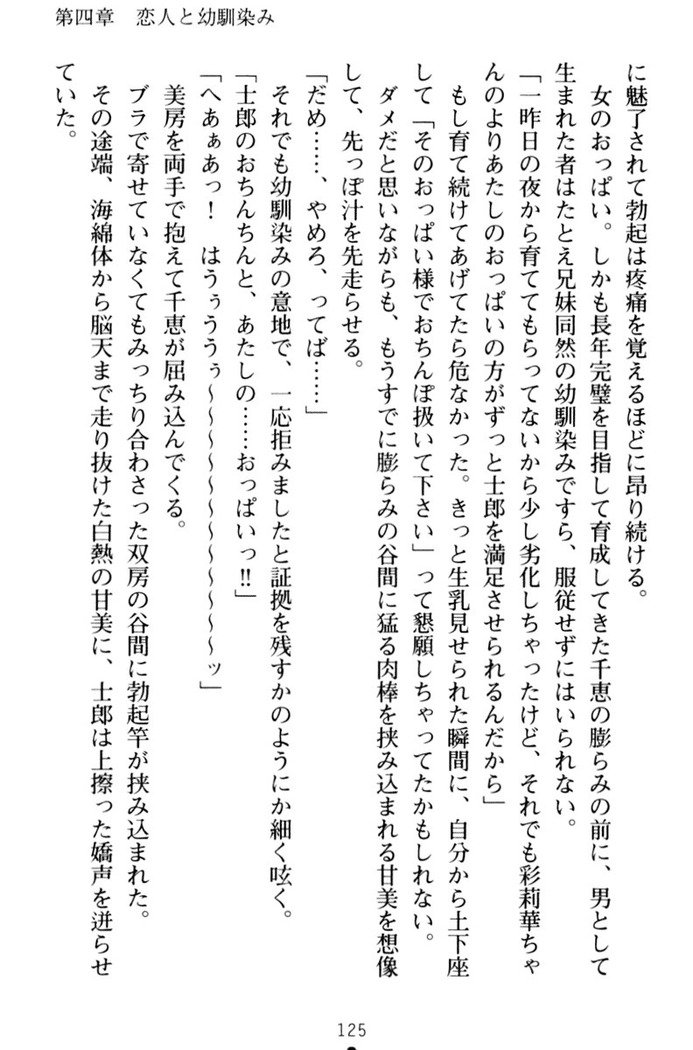 第四章　恋人と幼馴染み
に魅了されて勃起は疼痛を覚えるほどに昂り続ける。
女のおっぱい。しかも長年完璧を目指して育成してきた千恵の膨らみの前に、男として
生まれた者はたとえ兄妹同然の幼馴染みですら、服従せずにはいられない。
「一昨日の夜から育ててもらってないから少し劣化しちゃったけど、それでも彩莉華ちゃ
んのよりあたしのおっぱいの方がずっと士郎を満足させられるんだから」
もし育て続けてあげてたら危なかった。きっと生乳見せられた瞬間に、自分から土下座
して「そのおっぱい様でおちんぽ扱いて下さい」って懇願しちゃってたかもしれない。
ダメだと思いながらも、もうすでに膨らみの谷間に猛る肉棒を挟み込まれる甘美を想像
して、先っぽ汁を先走らせる。
「だめ……、やめろ、ってば……」
それでも幼馴染みの意地で、一応拒みましたと証拠を残すかのようにか細く呟く。
「士郎のおちんちんと、あたしの……おっぱいっ‼」
美房を両手で抱えて千恵が屈み込んでくる。
「へあぁあっ！　はうぅううぅ〜〜〜〜〜〜〜〜〜〜〜ッ」
ブラで寄せていなくてもみっちり合わさった双房の谷間に勃起竿が挟み込まれた。
その途端、海綿体から脳天まで走り抜けた白熱の甘美に、士郎は上擦った嬌声を迸らせ
ていた。
125